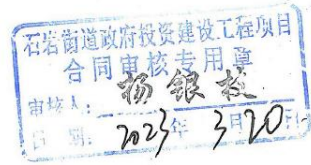 石岩街道政府投资建设工程项目
合同审核专用章
审核人：杨银枝
日期：2023年3月20日